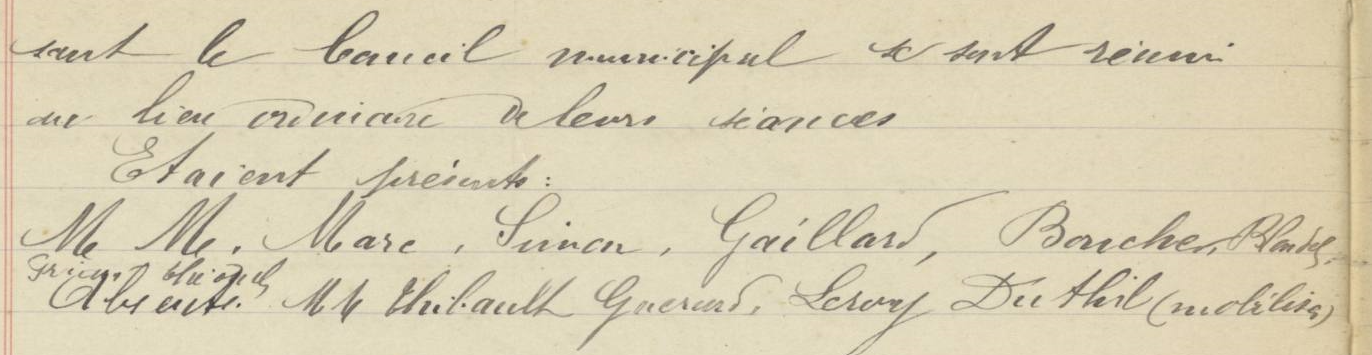 sant le Conseil municipal se sont réuni
au lieu ordinaire de leurs séances
Etaient présents:
M M. Marc, Simon, Gaillard, Boucher, Blondel,
Absents. M M Thibault Guerard, Leroy Duthil (mobilisés)